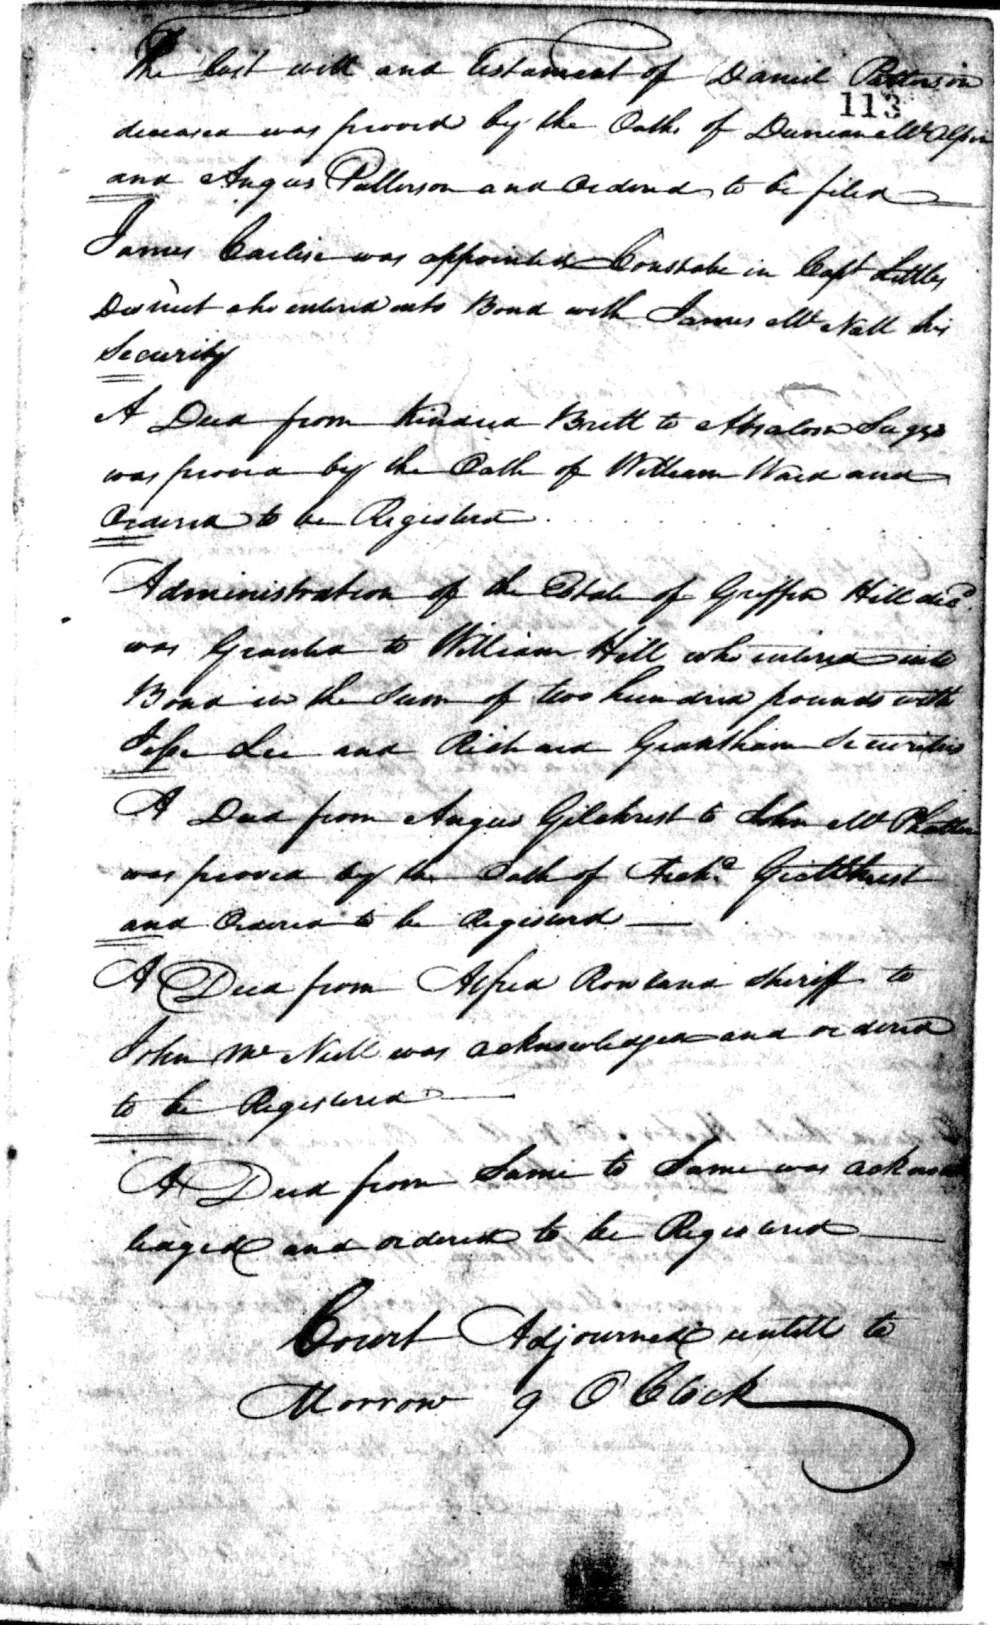 The last will and testament of Daniel Patterson
113
deceased was proved by the Oaths of Duncan Mc Alpin
and Angus Patterson and Ordered to be filed
James Carlise was appointed Constable in Capt Littles
District who entered into Bond with James Mc Natt his
Security
A Deed from Kindred Britt to Absalom Suggs
was proved by the Oath of William Ward and
Ordered to be Registerd
Administration of the Estate of Griffin Hill decd
was Granted to William Hill who entered into
Bond in the Sum of two hundred pounds with
Jesse Lee and Richard Grantham Securities
A Deed from Angus Gilchrist to John Mc
was proved by the Oath of Archd. Gillchrist
and Ordered to be Registerd
A Deed from Alfred Rowland Sheriff to
John Mc Neill was acknowledged and ordered
to be Registered
A Deed from Same to Same was acknow
ledged and ordered to be Registered
Court Adjourned untill to
Morrow 9 O Clock